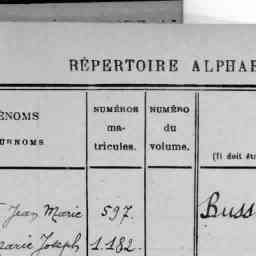 RÉPERTOIRE ALPHAB
ÉNOMS
URNOMS
NUMÉROS
ma-
tricules.
NUMÉRO
du
volume.
(Il doit êtr
Jean Marie 597. Buss
Marie Joseph 1.182.